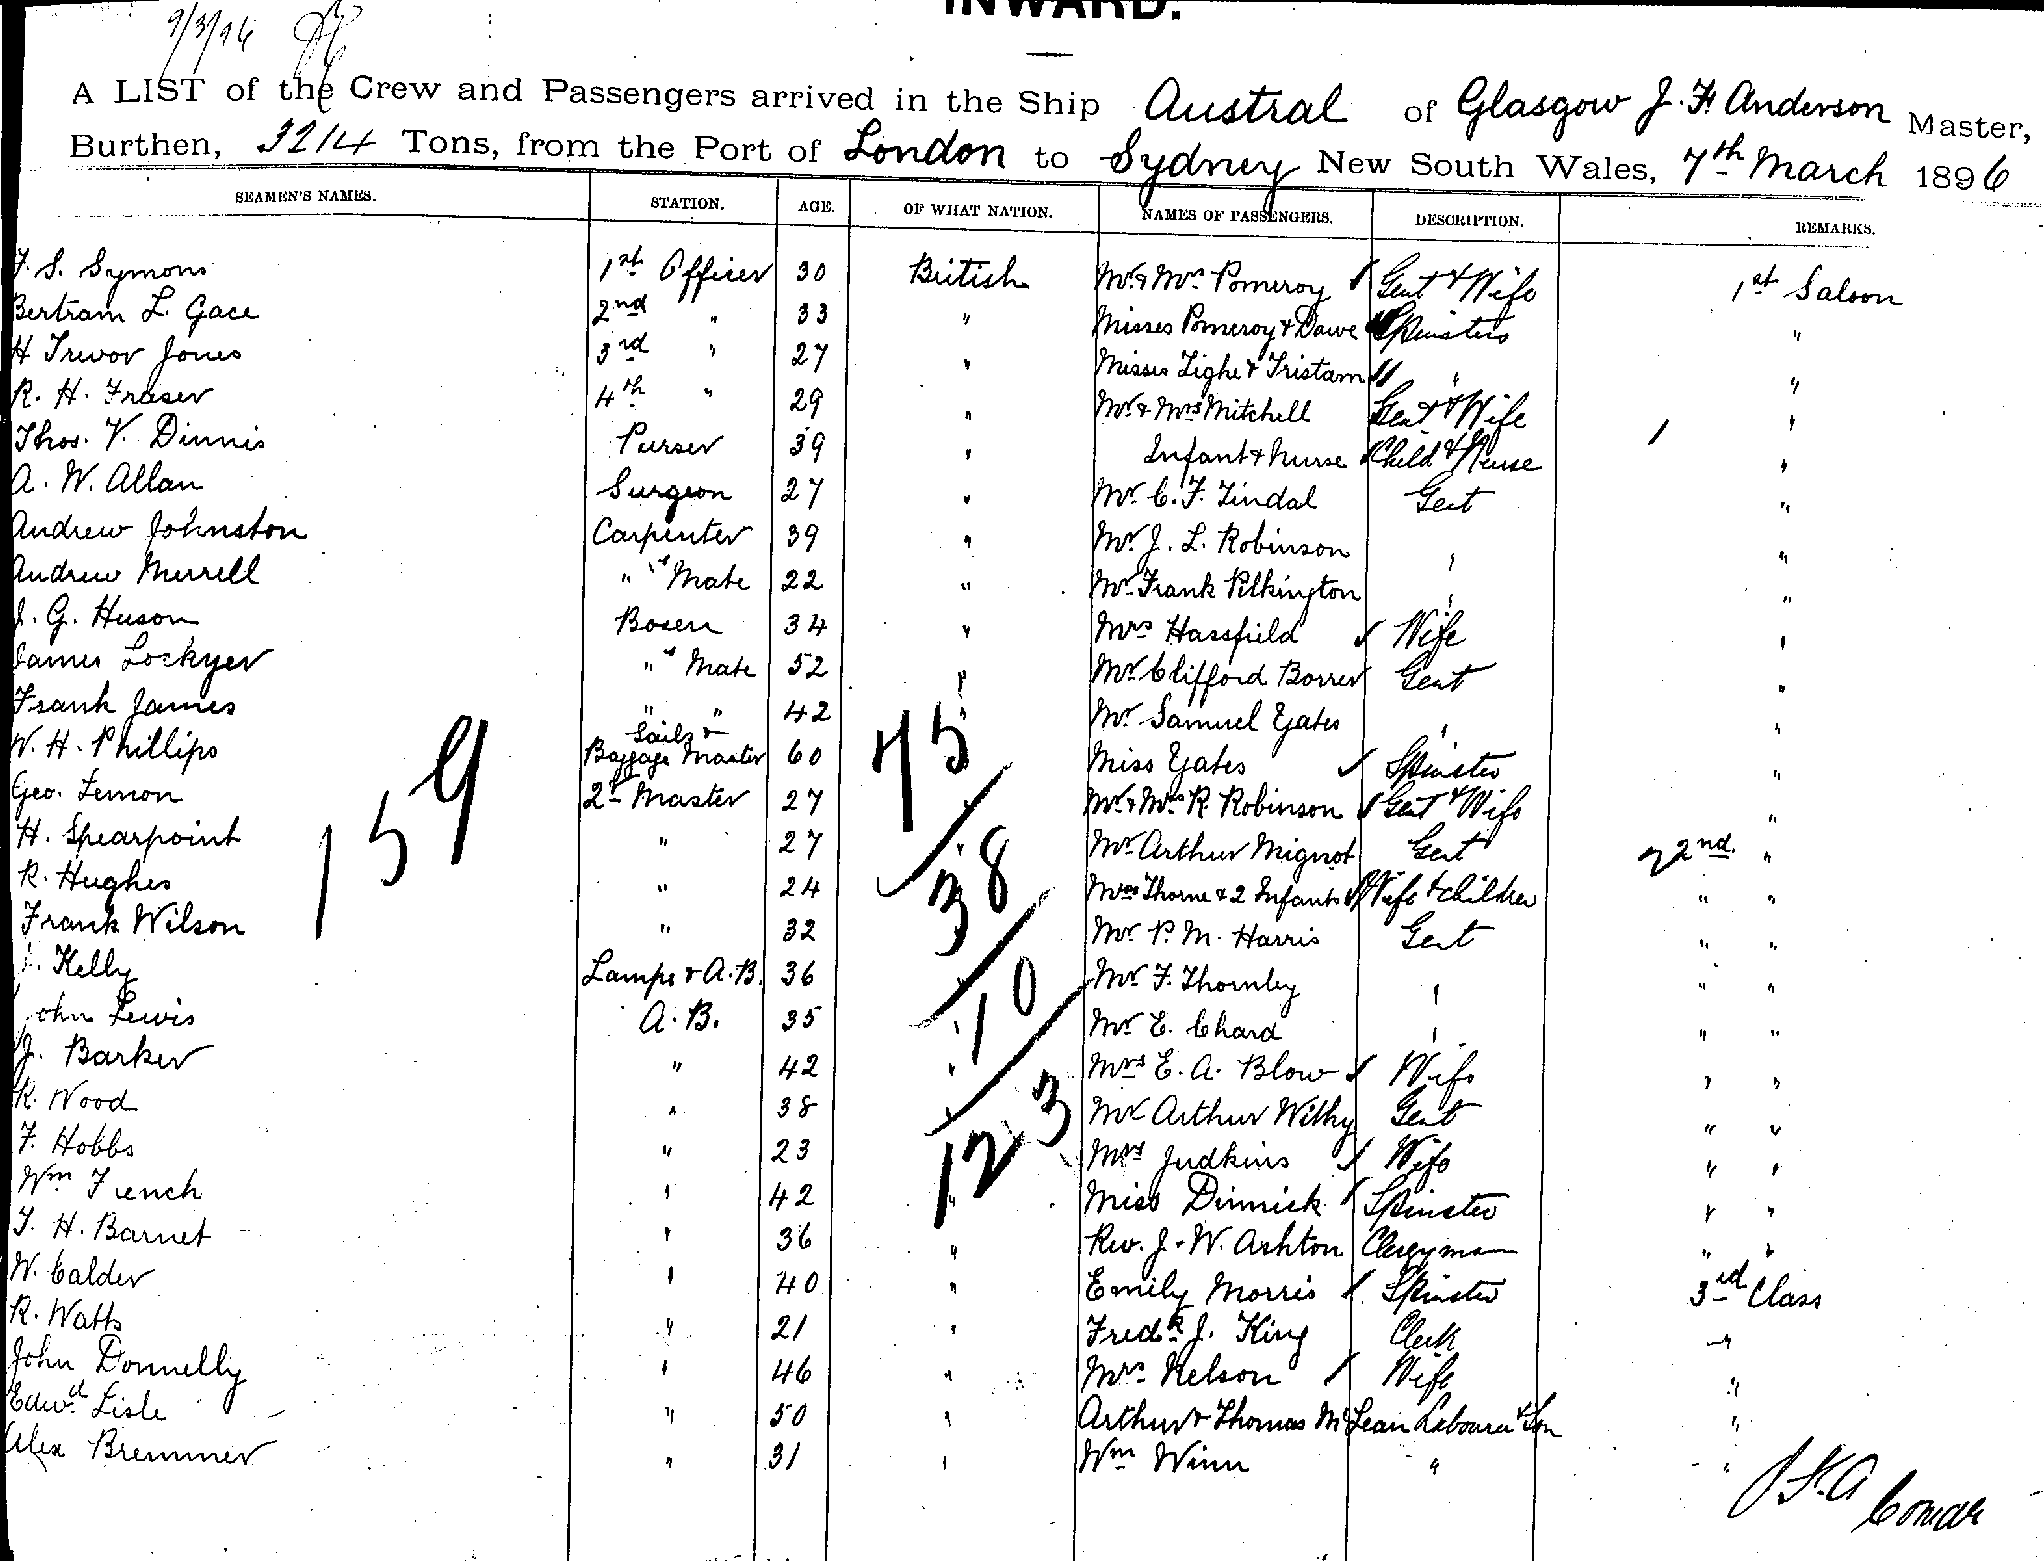 INWARD.
9/3/96
A LIST of the Crew and Passengers arrived in the Ship Austral of Glasgow J. F. Anderson Master,
Burthen, 3214 Tons, from the Port of London to Sydney New South Wales, 7th March 1896
SEAMEN'S NAMES. STATION. AGE. OF WHAT NATION. NAMES OF PASSENGERS. DESCRIPTION. REMARKS.
F. S. Symons 1st Officer 30 British Mr & Mrs Pomeroy Gent & Wife 1st Saloon
Bertram L. Gace 2nd " 33 " Misses Pomeroy & Dawe Spinsters "
H Trevor Jones 3rd " 27 " Misses Tighe & Tristam " "
R. H. Fraser 4th " 29 " Mr & Mrs Mitchell Gent & Wife "
Thos. V. Dinnis Purser 39 " Infant & Nurse Child & Nurse "
A. W. Allan Surgeon 27 " Mr C. F. Tindal Gent "
Andrew Johnston Carpenter 39 " Mr J. L. Robinson " "
Andrew Merrell " Mate 22 " Mr Frank Pilkington " "
J. G. Huson Bosen 34 " Mrs Hassfield Wife "
James Lockyer " Mate 52 " Mr Clifford Borrer Gent "
Frank James " " 42 " Mr Samuel Yates " "
W. H. Phillips Sails & Baggage Master 60 Miss Yates Spinster "
Geo. Lemon 2r Master 27 Mr & Mrs R Robinson Gent & Wife "
H. Spearpoint " 27 " Mr Arthur Mignot Gent 2nd "
R. Hughes " 24 Mrs Thorne & 2 Infants Wife & Children " "
Frank Wilson " 32 Mr P. M. Harris Gent " "
J. Kelly Lamps & A.B. 36 " Mr F. Thornley " " "
John Lewis A.B. 35 " Mr E. Chard " " "
J. Barker " 42 " Mrs E. A. Blow Wife " "
R. Wood " 38 " Mr Arthur Withy Gent " "
F. Hobbs " 23 Mrs Judkins Wife " "
Wm French " 42 " Miss Dinnick Spinster " "
T. H. Barnet " 36 " Rev. J. W. Ashton Clergyman " "
W. Calder " 40 " Emily Morris Spinster 3rd Class
R. Watts " 21 " Fredk J. King Clerk "
John Donnelly " 46 " Mrs Nelson Wife "
Edwd Lisle " 50 " Arthur & Thomas McLean Labourer & Son "
Alex Bremner " 31 " Wm Winn " "
159
75
38
10
123
J. F. A
Comdr